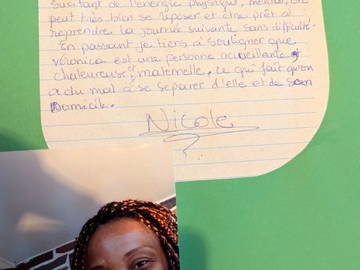 suscitant de l'énergie physique, mental, on
peut très bien se reposer et être prêt à
reprendre la journée suivante sans difficulté.
En passant je tiens à souligner que
véronica est une personne accueillante,
chaleureuse, maternelle, ce qui fait qu'on
a du mal à se séparer d'elle et de son
Domicile.
Nicole